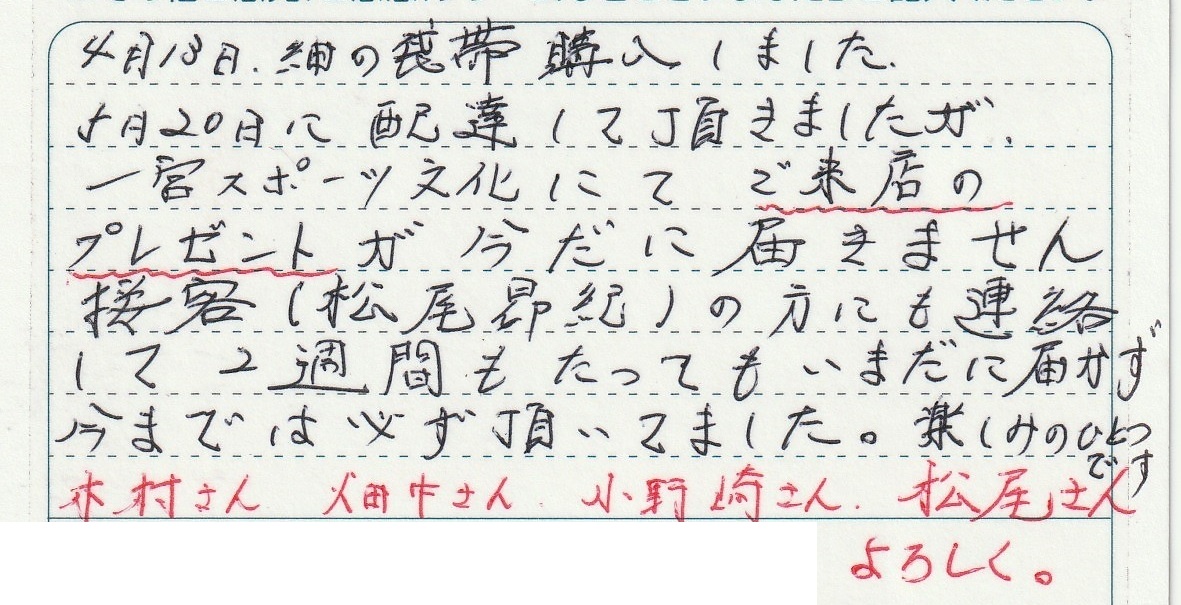 4月18日.紬の我帯 購入しました.
5月20日に 配達して頂きましたが、
一宮スポーツ文化にて ご来店の
プレゼントが 今だに 届きません
接客(松尾昴紀)の方にも連絡
して 2週間もたってもいまだに届かず
今までは必ず頂いてました。楽しみのひとつです
木村さん 畑中さん. 小野崎さん. 松尾さん
よろしく。